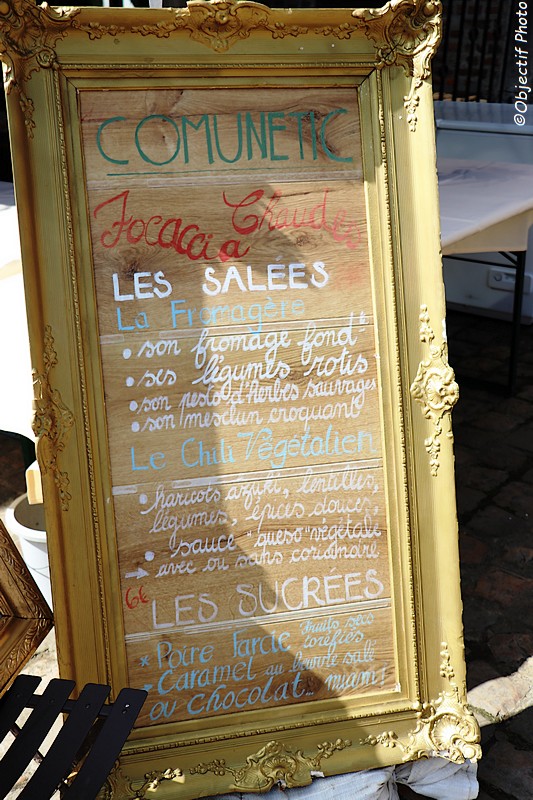 ©Objectif Photo
COMUNETIC
Focaccia Chaudes
LES SALÉES
La Fromagère
• son fromage fondᵗ
• ses légumes rotis
• son pesto d'herbes sauvages
• son mesclun croquant
Le Chili Végétalien
• haricots azuki, lentilles,
légumes, épices douces,
• sauce "queso" végétale
→ avec ou sans coriandre
6€
LES SUCRÉES
* Poire Farcie fruits secs
torréfiés
* Caramel au beurre salé
ou chocolat... miam!